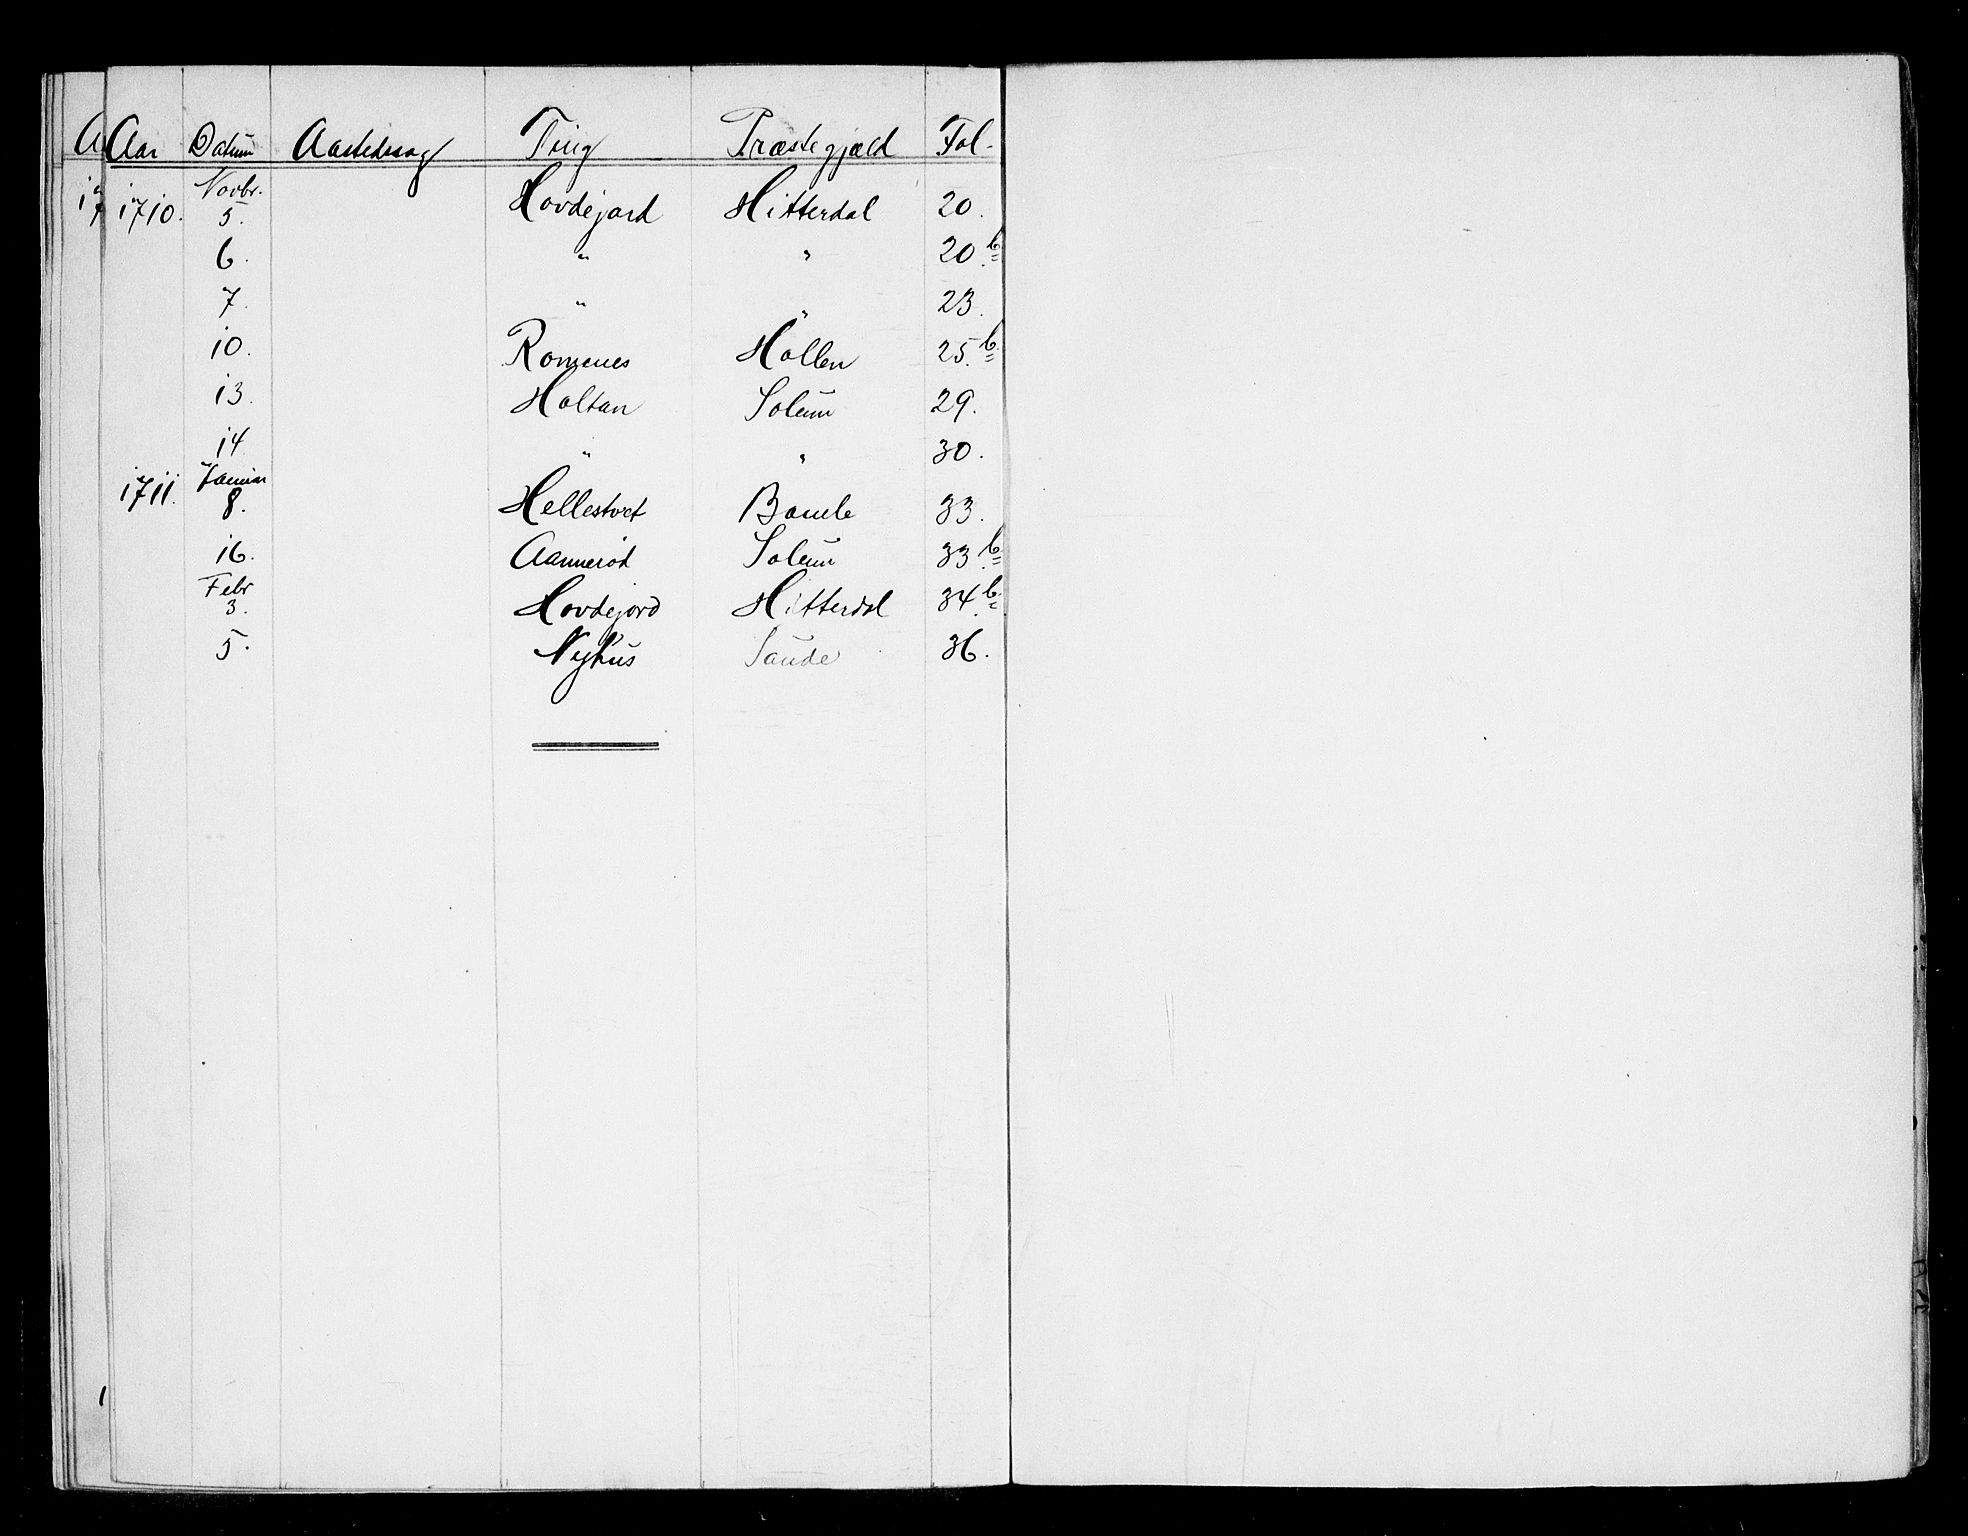 Aar Datum Aastedssag Ting Præstegjæld Fol.
1710. Novbr. 5. Hovdejord Hitterdal 20.
6. " " 20 b.
7. " " 23.
10. Romenes Hollen 25. b.
13. Holtan Solum 29.
14 " " 30.
1711. Januar 8. Hellestvet Bamle 33.
16. Aannerød Solum 33 b.
Febr 3. Hovdejord Hitterdal 34. b.
5. Nyhus Saude 36.